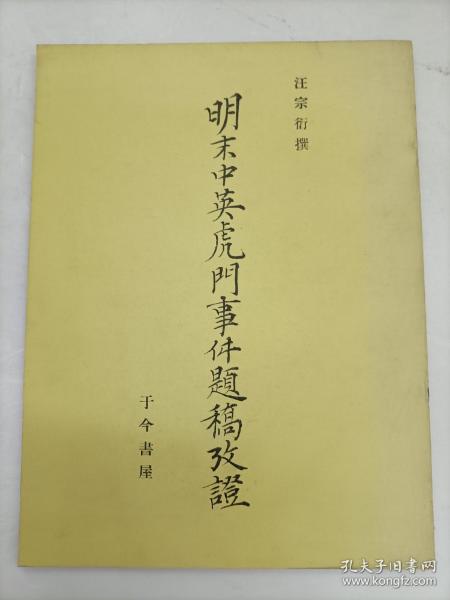 汪宗衍撰
明末中英虎門事件題稿攷證
于今書屋
孔夫子旧书网
www.kongfz.com